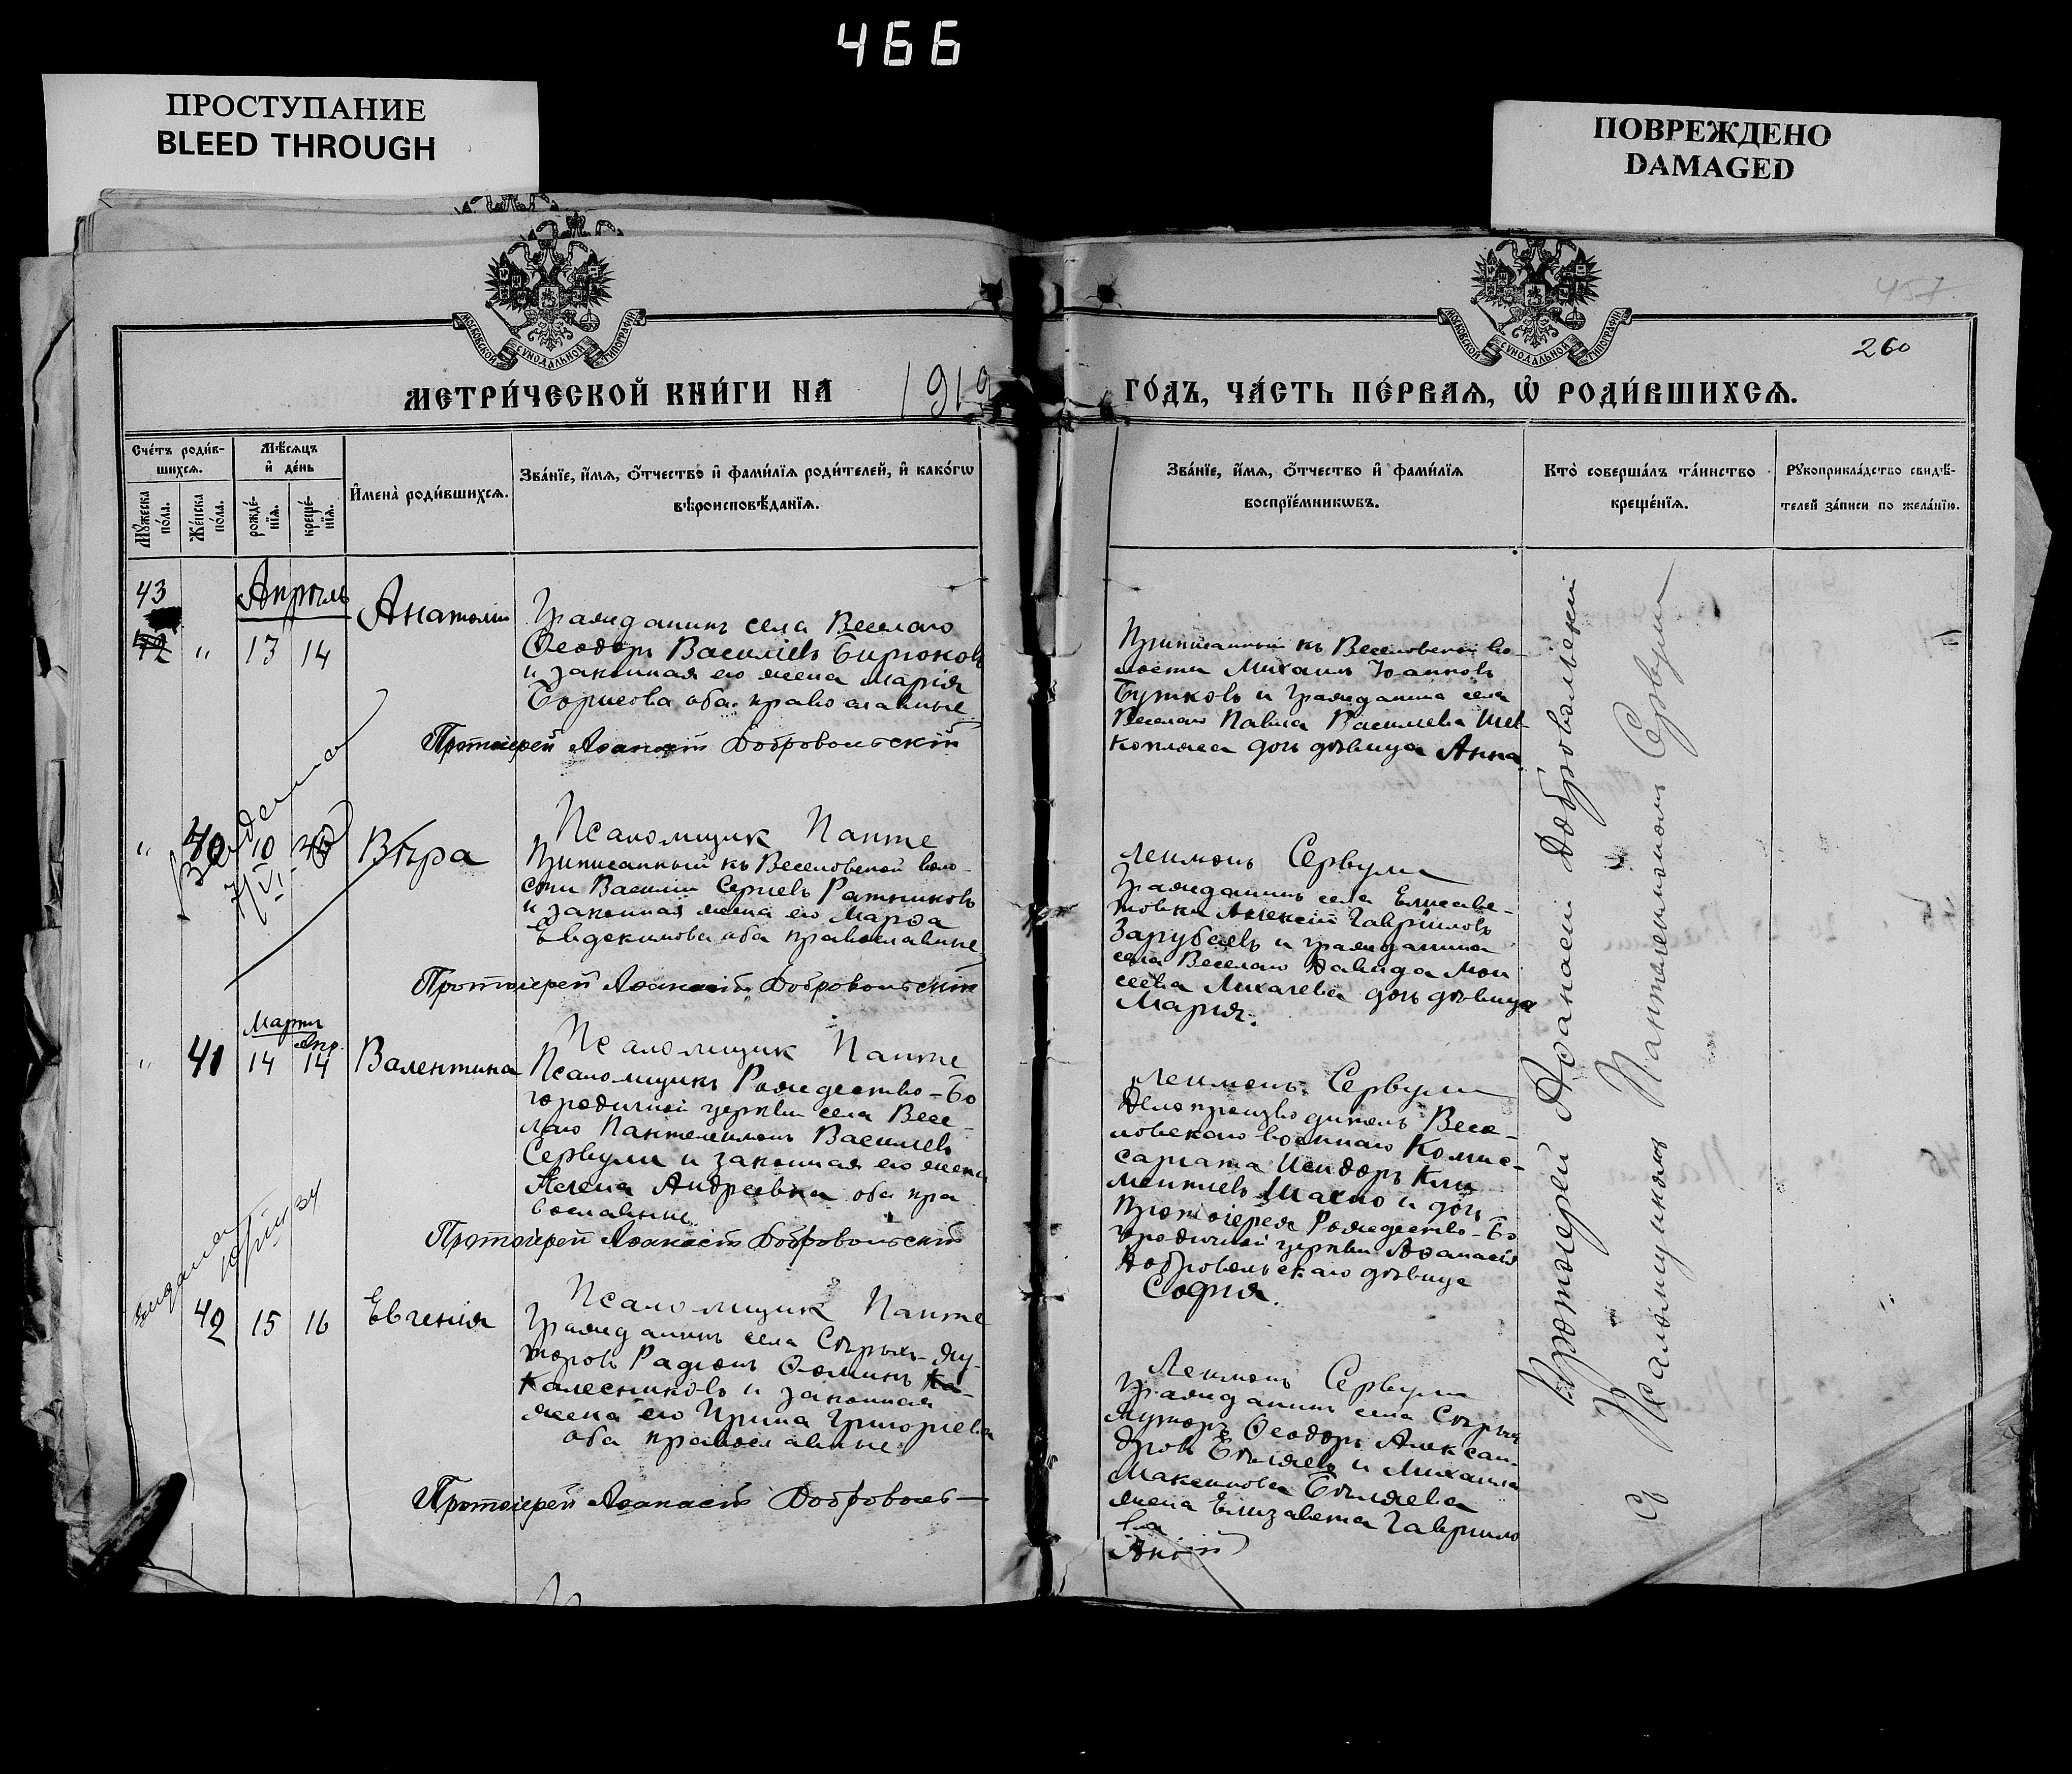 466
ПРОСТУПАНИЕ
BLEED THROUGH
ПОВРЕЖДЕНО
DAMAGED
МОСКОВСКОЙ СУНОДАЛЬНОЙ ТИПОГРАФІИ
МОСКОВСКОЙ СУНОДАЛЬНОЙ ТИПОГРАФІИ
457
260
МЕТРИ́ЧЕСКОЙ КНИ́ГИ НА 1919 ГО́ДЪ, ЧА́СТЬ ПЕ́РВАѦ, Ѡ҆ РОДИ́ВШИХСѦ.
Сче́тъ роди́в-
шихсѧ.
Мꙋ́жеска по́ла.
Же́нска по́ла.
Мѣ́сѧцъ и҆ де́нь
рожде́-
нїѧ.
креще́-
нїѧ.
И҆мена̀ роди́вшихсѧ.
Зва́нїе, и҆́мѧ, ѻ҆́тчество и҆ фами́лїѧ роди́телей, и҆ како́гѡ
вѣроисповѣ́данїѧ.
Зва́нїе, и҆́мѧ, ѻ҆́тчество и҆ фами́лїѧ
воспрїе́мникѡвъ.
Кто̀ соверша́лъ та́инство
креще́нїѧ.
Рꙋкоприкла́дство свидѣ́-
телей за́писи по жела́нїю.
43
Апрѣль
42 " 13 14
Анатолій
Гражданинъ села Веселаго
Ѳеодоръ Василіевъ Бирюковъ
и законная его жена Марія
Борисова оба православные
Протоіерей Аѳанасій Добровольскій
Приписанный къ Веселовской во-
лости Михаилъ Іоанновъ
Бутковъ и гражданина села
Веселаго Павла Василіева Шев-
копляса дочь дѣвица Анна.
" 40 10
Выдана
7/VI
Вѣра
Псаломщик Панте
Приписанный къ Веселовской воло-
сти Василій Сергіевъ Ратниковъ
и законная жена его Марѳа
Евдокимова оба православные
Протоіерей Аѳанасій Добровольскій
леимонъ Сервули
Гражданинъ села Елисаве-
товки Алексій Гавріиловъ
Зарубаевъ и гражданина
села Веселаго Давида Мои
сеева Лихачева дочь дѣвица
Марія.
Мартъ
Апр.
" 41 14 14
Валентина
Псаломщик Панте
Псаломщикъ Рождество-Бо
городичной церкви села Весе-
лаго Пантелеимонъ Василіевъ
Сервули и законная его жена
Елена Андреевна оба пра
вославные
Протоіерей Аѳанасій Добровольскій
леимонъ Сервули
Дѣлопроизводитель Весе-
ловскаго военнаго Комис-
саріата Исидоръ Кли
ментіевъ Шахно и дочь
Протоіерея Рождество-Бо
городичной церкви Аѳанасія
Добровольскаго дѣвица
Софія.
Выдана
34
42 15 16
Евгенія
Псаломщик Панте
Гражданинъ села Сѣрыхъ-Ху-
торовъ Радіонъ Ѳоминъ Ка-
Калесниковъ и законная
жена его Ирина Григоріева
оба православные
Протоіерей Аѳанасій Доброволь-
Леимонъ Сервули
Гражданинъ села Сѣрыхъ
Хуторъ Ѳеодоръ Алексан-
дровъ Бѣляевъ и Михаила
Максимова Бѣляева
жена Елизавета Гаврило
ва
Протоіерей Аѳанасій Добровольскій
С Псаломщикомъ Пантелеимономъ Сервули